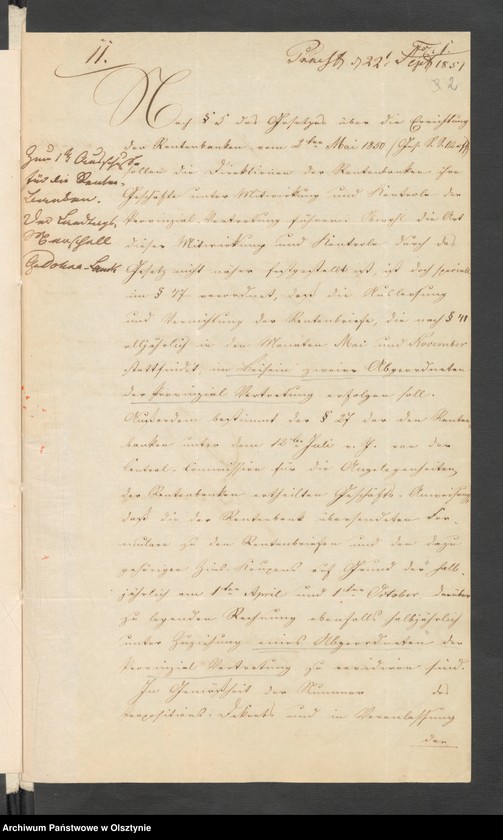 II.
22. Sept 1851
2
Nach § 5 des Gesetzes über die Errichtung
der Rentenbanken vom 2ten Mai 1850
sollen die Direktionen der Rentenbanken ihre
Geschäfte unter Mitwirkung und Kontrole der
Provinzial-Vertretung führen. Obwohl die Art
dieser Mitwirkung und Kontrole durch das
Gesetz nicht näher festgestellt ist, ist doch speciell
im § 47 verordnet, daß die Ausloosung
und Vernichtung der Rentenbriefe, die nach § 41
alljährlich in den Monaten Mai und November
stattfindet, im Beisein zweier Abgeordneten
der Provinzial Vertretung erfolgen soll.
Außerdem bestimmt der § 27 der den Renten
banken unter dem 12ten Juli v. J. von der
Central-Commission für die Angelegenheiten
der Rentenbanken ertheilten Geschäfts-Anweisung,
daß die der Rentenbank übersendeten For-
mulare zu den Rentenbriefen und den dazu
gehörigen Zins-Kupons auf Grund der halb-
jährlich am 1ten April und 1ten October darüber
zu legenden Rechnung ebenfalls halbjährlich
unter Zuziehung eines Abgeordneten der
Provinzial Vertretung zu revidiren sind.
In Gemäßheit der Nummer des
Propositions-Dekrets und in Veranlassung
der
Zum Ausschuß
für die Renten-
banken.
Der Landtags
Marschall
Dohna-Lauck
Archiwum Państwowe w Olsztynie